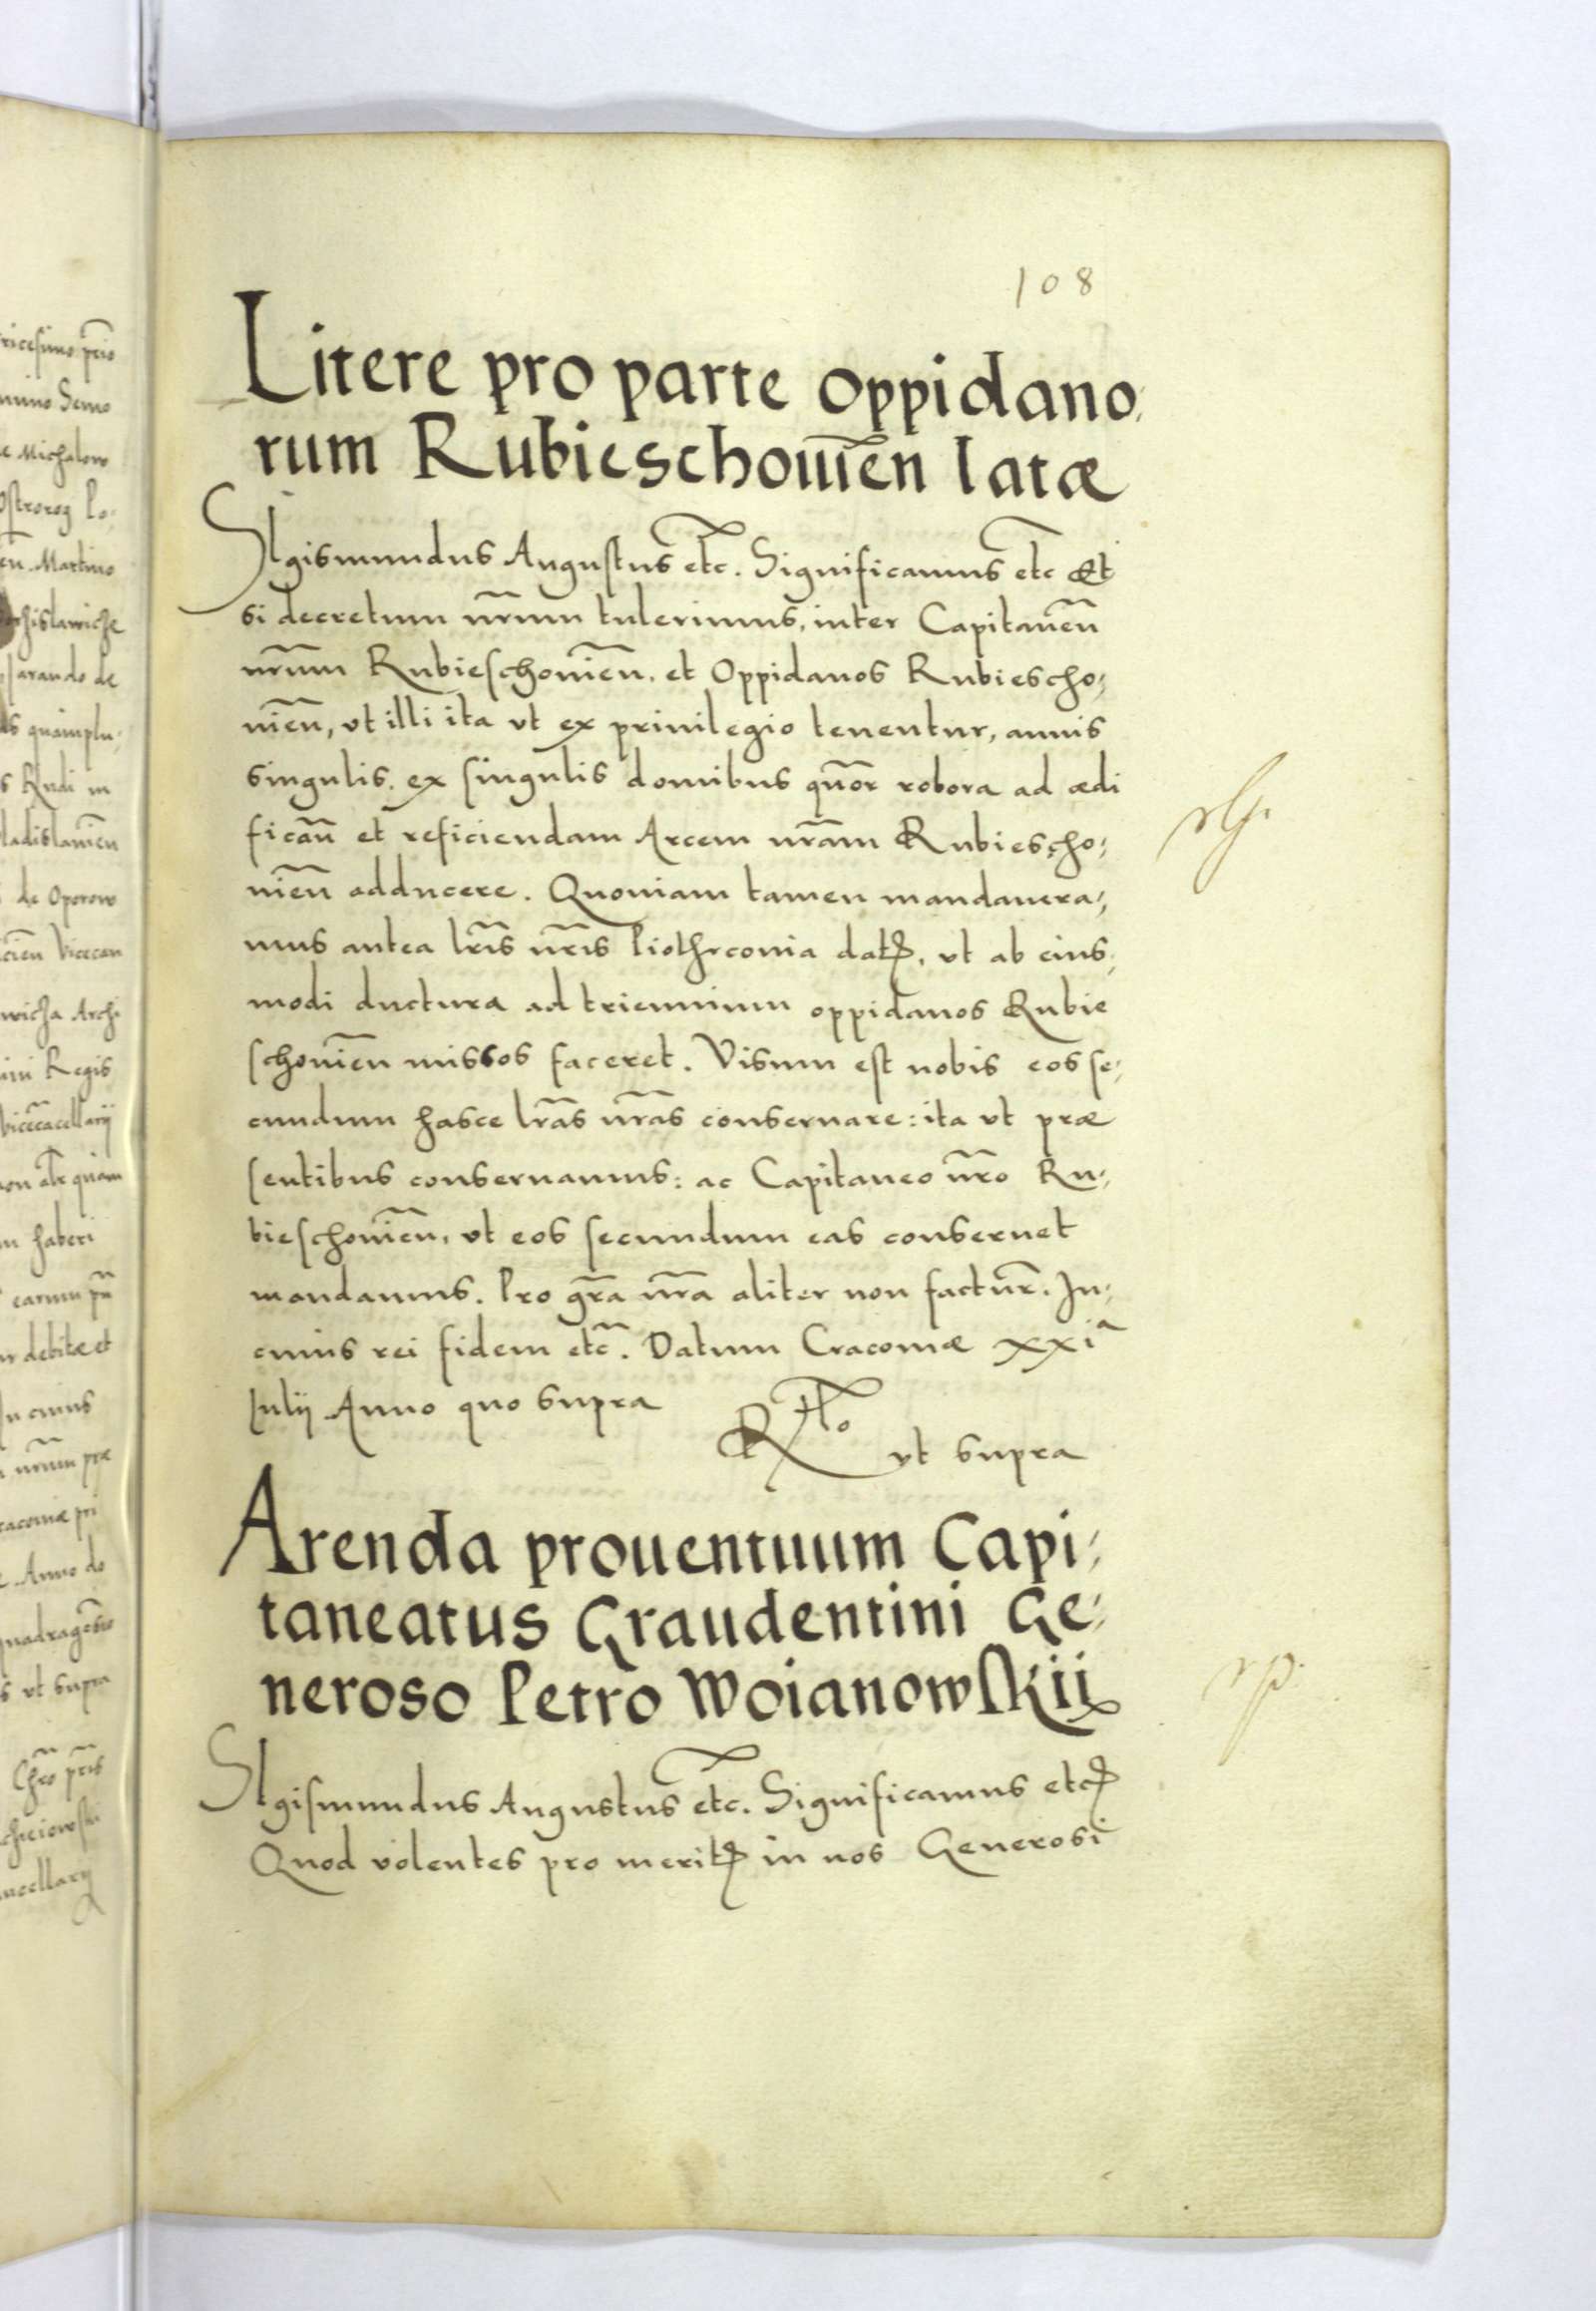 108
Litere pro parte oppidano,
rum Rubieschouien̄ latæ
SIgismundus Augustus etc̄. Significamus etc̄ Et
si decretum nr̄um tulerimus, inter Capitaneū
nr̄um Rubieschouien̄. et Oppidanos Rubiescho,
uien̄, vt illi ita vt ex priuilegio tenentur, annis
singulis. ex singulis domibus quōr robora ad ædi
ficān et reficiendam Arcem nr̄am Rubiescho,
uien̄ adducere. Quoniam tamen mandauera,
mus antea lr̄is nr̄is Piothrconia datꝭ, vt ab eius,
modi ductura ad triennium oppidanos Rubie
schouien̄ missos faceret. Visum est nobis eos se,
cundum hasce lr̄as nr̄as conseruare: ita vt præ
sentibus conseruamus: ac Capitaneo nr̄o Ru,
bieschouien̄, vt eos secundum eas conseruet
mandamus. Pro gr̄a nr̄a aliter non factur̄. In,
cuius rei fidem etc̄. Datum Cracouiæ xxiᵃ
Iulij Anno quo supra
Rˡᵗᵒ vt supra
Arenda prouentuum Capi,
taneatus Graudentini Ge,
neroso Petro Woianowskii
SIgismundus Augustus etc̄. Significamus etcꝭ
Quod volentes pro meritꝭ in nos Generosi